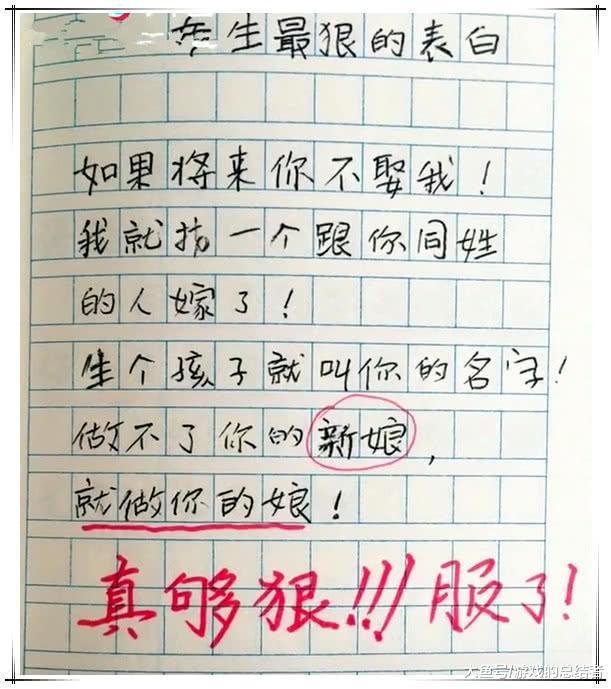 生最狠的表白
如果将来你不娶我！
我就找一个跟你同姓
的人嫁了！
生个孩子就叫你的名字！
做不了你的新娘，
就做你的娘！
真够狠!!!服了!
大鱼号/游戏的总结者